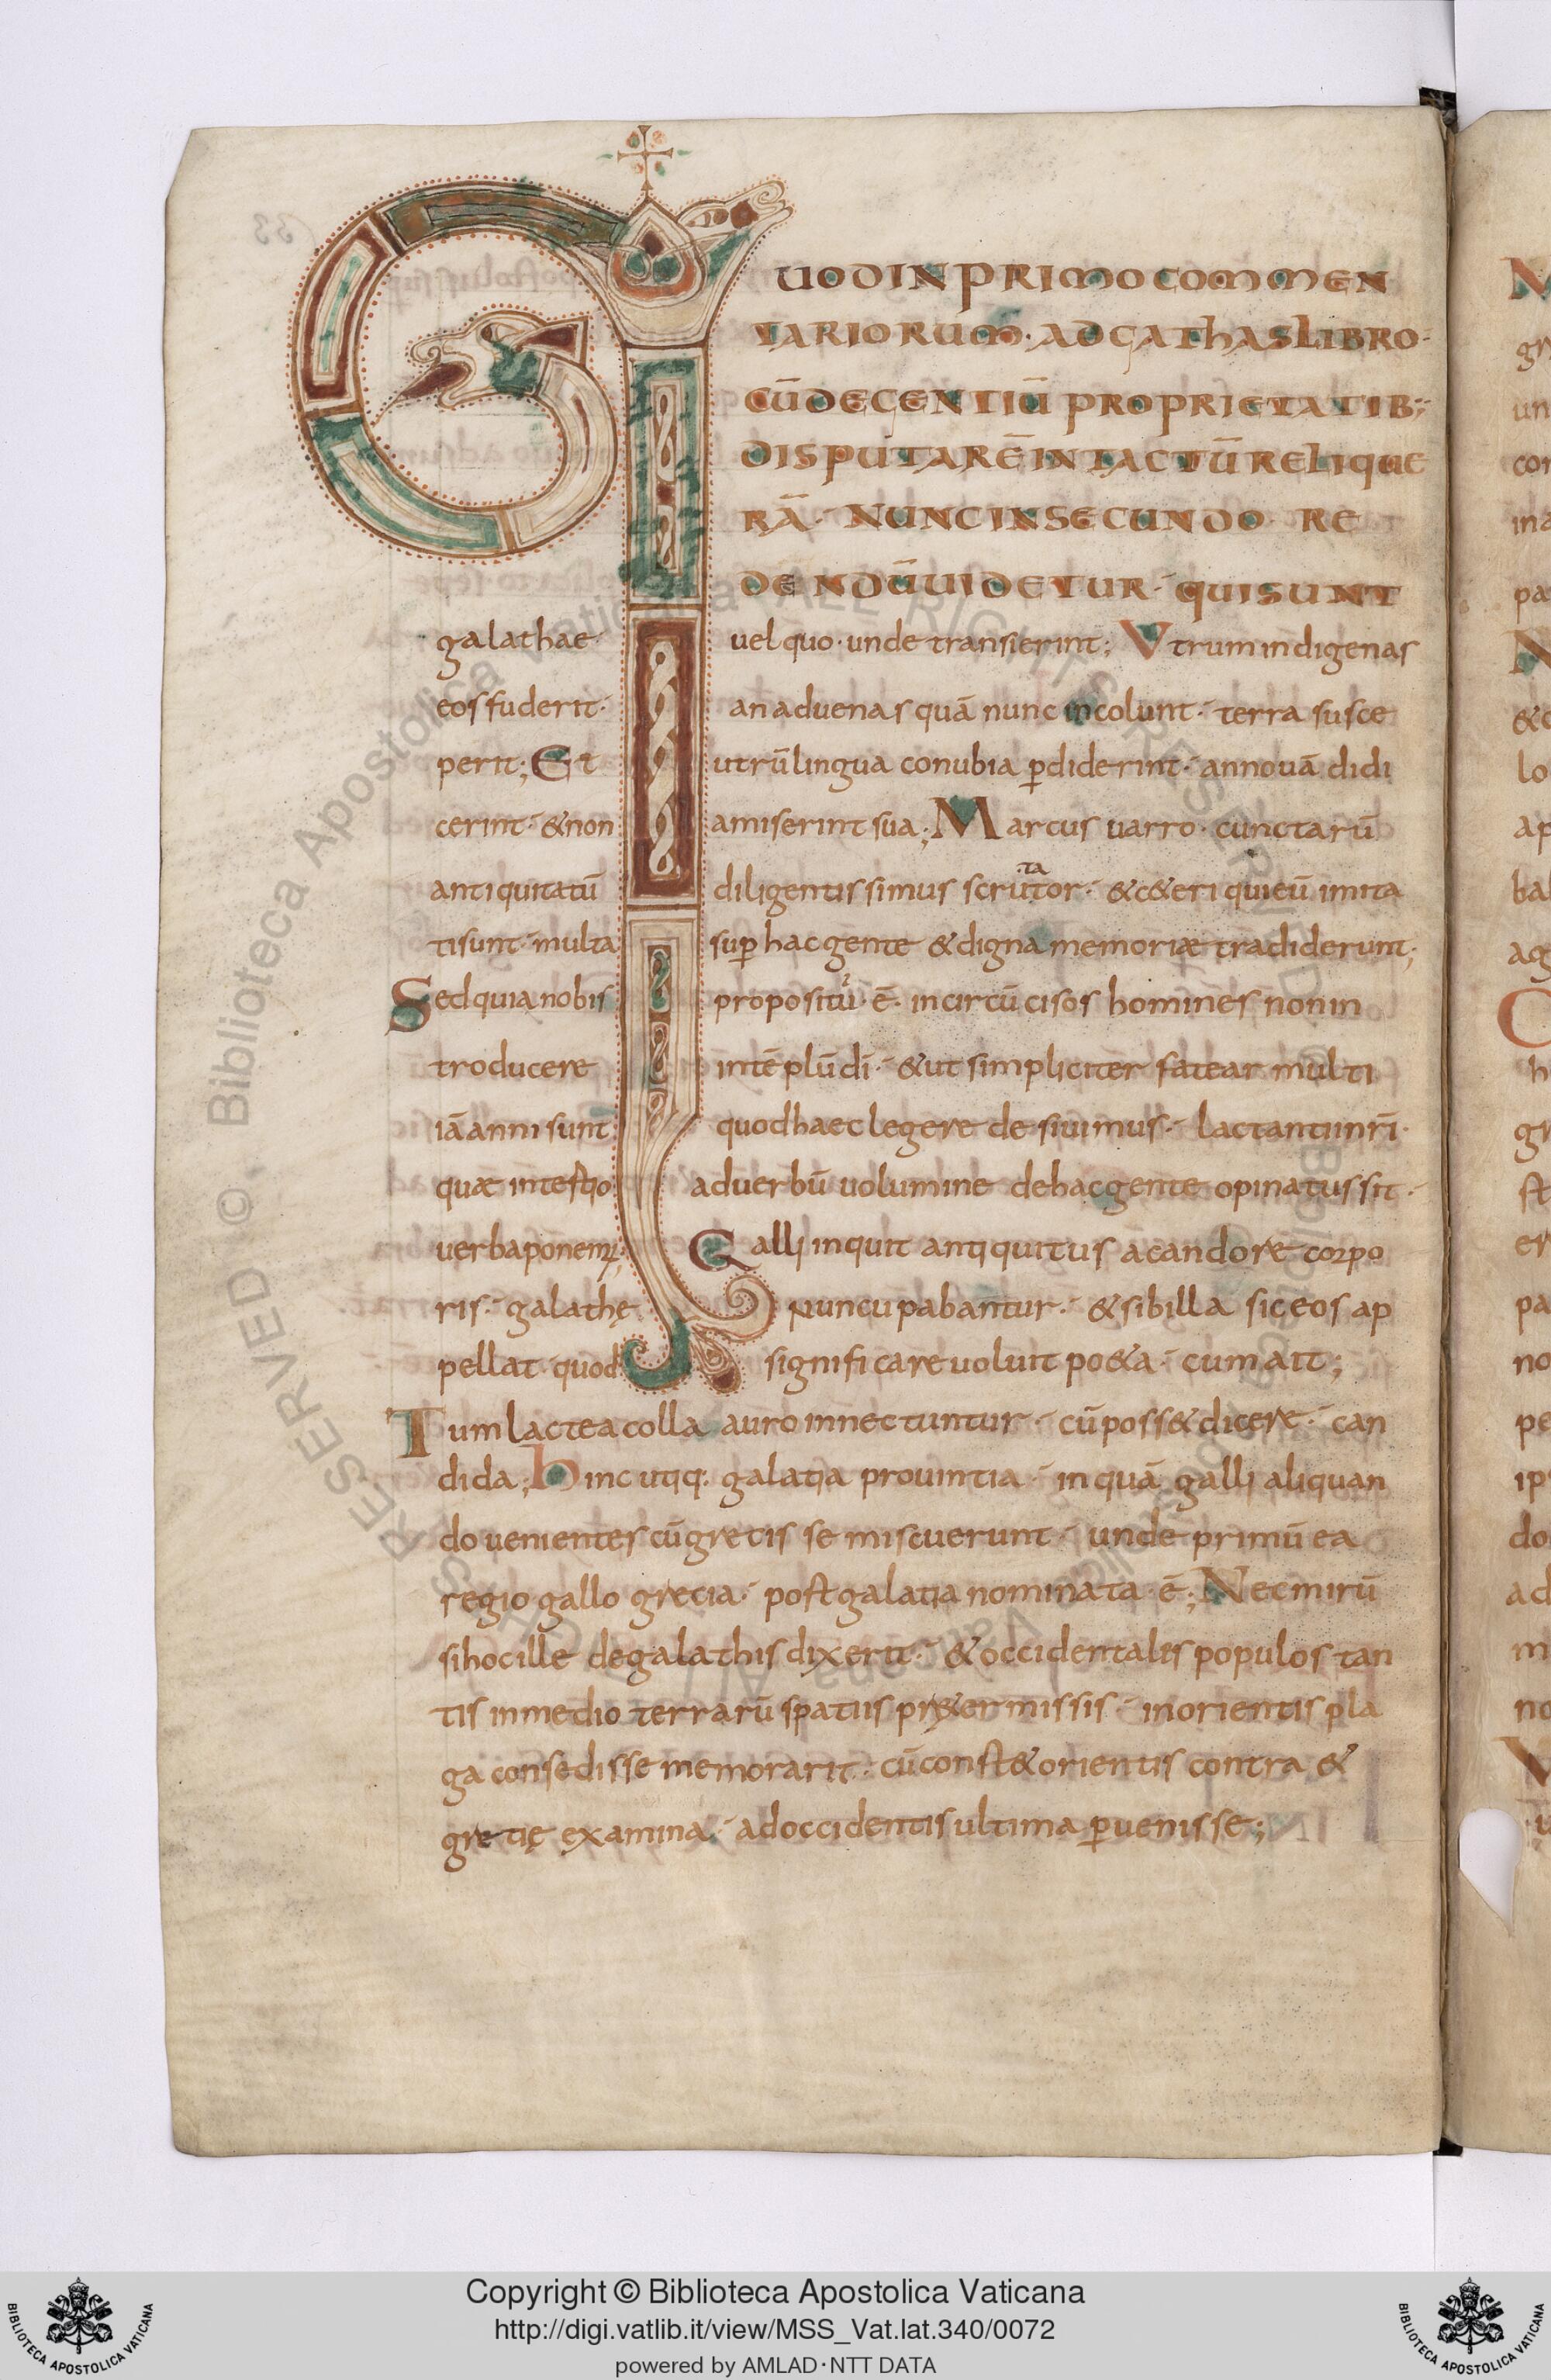 QUODINPRIMOCOMMEN
TARIORUM· ADGATHASLIBRO·
CŪDEGENTIŪ PROPRIETATIB;
DISPUTARĒINTACTŪRELIQUE
RĀ· NUNCINSECUNDO RE
DENDŪUIDETUR· QUISUNT
galathae· uelquo·undetransierint; Vtrumindigenas
eosfuderit· anaduenasquā nunc incolunt· terra susce
perit; Et utrūlingua conubia ꝑdiderint· annouā didi
cerint· &non amiserint sua; Marcus uarro· cunctarū
antiquitatū diligentissimus scrutator· &c&eri quieū imita
tisunt· multa suꝑ hacgente &digna memoriæ tradiderunt;
Sedquianobis propositū·ē· incircūcisos homines nonin
troducere intēplūdī· &utsimpliciter fatear multi
iāannisunt quodhaeclegere desiuimus· lactantiinr̄i·
quæ intertio aduerbū uolumine dehacgente opinatussit·
uerbaponem; Galliinquit antiquitus acandore corpo
ris· galathę nuncupabantur· &sibilla siceos ap
pellat·quod significareuoluit po&a· cumait;
Tumlacteacolla auroinnectuntur· cūposs&dicere· can
dida; hinc utiq; galatia prouintia· inquā galli aliquan
douenientes cūgretis se miscuerunt· unde primū ea
regio gallo grecia· postgalatia nominata·ē; Necmirū
sihocille degalathisdixerit· &occidentalis populos tan
tis inmedio terrarū spatiis pr&ermissis· inorientis pla
ga consedisse memorarit· cūconst&orientis contra &
gretię examina· adoccidentisultima ꝑuenisse;
Copyright © Biblioteca Apostolica Vaticana
http://digi.vatlib.it/view/MSS_Vat.lat.340/0072
powered by AMLAD·NTT DATA
BIBLIOTECA APOSTOLICA VATICANA
BIBLIOTECA APOSTOLICA VATICANA